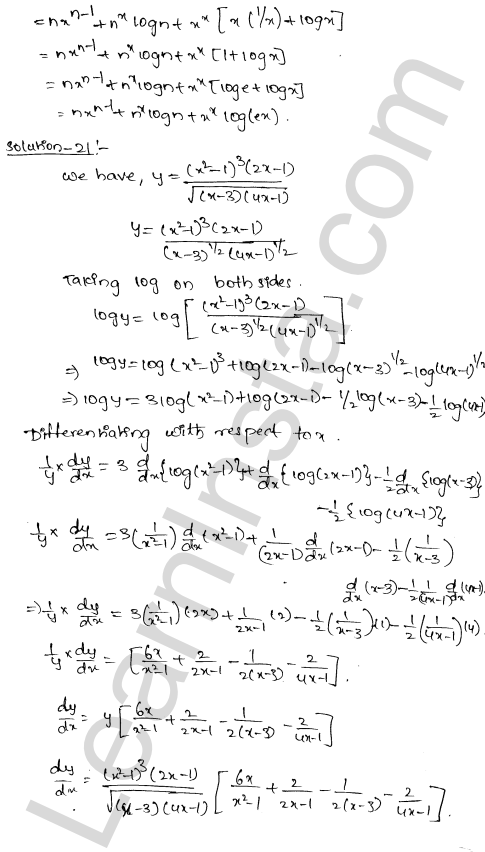 = nx^(n-1) + n^x logn + x^x [x(1/x) + logx]
= nx^(n-1) + n^x logn + x^x [1+logx]
= nx^(n-1) + n^x logn + x^x [loge + logx]
= nx^(n-1) + n^x logn + x^x log(ex).
Solution-21:-
we have, y = (x²-1)³(2x-1) / √(x-3)(4x-1)
y = (x²-1)³(2x-1) / (x-3)^1/2 (4x-1)^1/2
Taking log on both sides.
logy = log [ (x²-1)³(2x-1) / (x-3)^1/2 (4x-1)^1/2 ].
⇒ logy = log(x²-1)³ + log(2x-1) - log(x-3)^1/2 - log(4x-1)^1/2
⇒ logy = 3log(x²-1) + log(2x-1) - 1/2 log(x-3) - 1/2 log(4x-1)
Differentiating with respect to x.
1/y × dy/dx = 3 d/dx {log(x²-1)} + d/dx {log(2x-1)} - 1/2 d/dx {log(x-3)}
- 1/2 {log(4x-1)}
1/y × dy/dx = 3(1/x²-1) d/dx (x²-1) + 1/(2x-1) d/dx (2x-1) - 1/2 (1/x-3)
d/dx (x-3) - 1/2 1/(4x-1) d/dx (4x-1).
⇒ 1/y × dy/dx = 3(1/x²-1)(2x) + 1/2x-1 (2) - 1/2 (1/x-3)(1) - 1/2 (1/4x-1)(4).
1/y × dy/dx = [6x/x²-1 + 2/2x-1 - 1/2(x-3) - 2/4x-1].
dy/dx = y [6x/x²-1 + 2/2x-1 - 1/2(x-3) - 2/4x-1]
dy/dx = (x²-1)³(2x-1) / √(x-3)(4x-1) [6x/x²-1 + 2/2x-1 - 1/2(x-3) - 2/4x-1].
LearnInsta.com